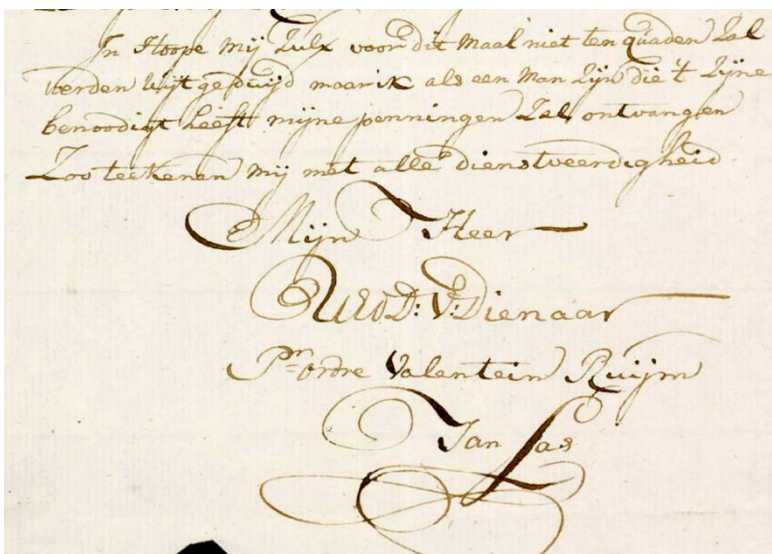 In Hoope mij Zulx voor dit Maal niet ten quaden Zal
werden uijt geduijd maar ik als een Man Zijn die 't Zijne
benoodigt heeft mijne penningen Zal ontvangen
Zoo teekenen mij met alle dienstveerdigheid
Mijn Heer
UEd: D: Dienaar
Pr ordre Valentein Ruijm
Jan Las